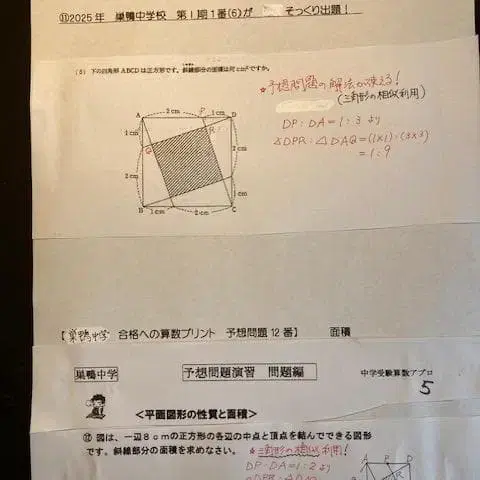 ⑪2025年 巣鴨中学校 第Ⅰ期1番(6)が そっくり出題!
(6) 下の四角形ABCDは正方形です。斜線部分の面積は何cm²ですか。
★予想問題の解法が使える!
(三角形の相似利用)
DP:DA=1:3より
△DPR:△DAQ=(1×1):(3×3)
=1:9
2cm P 1cm
A D
R
Q
1cm 2cm
2cm 1cm
B C
1cm 2cm
【巣鴨中学 合格への算数プリント 予想問題12番】 面積
巣鴨中学 予想問題演習 問題編 中学受験算数アプロ
5
<平面図形の性質と面積>
⑫ 図は、一辺8cmの正方形の各辺の中点と頂点を結んでできる図形
です。斜線部分の面積を求めなさい。
★三角形の相似利用!
DP:DA=1:2より
A P D
R